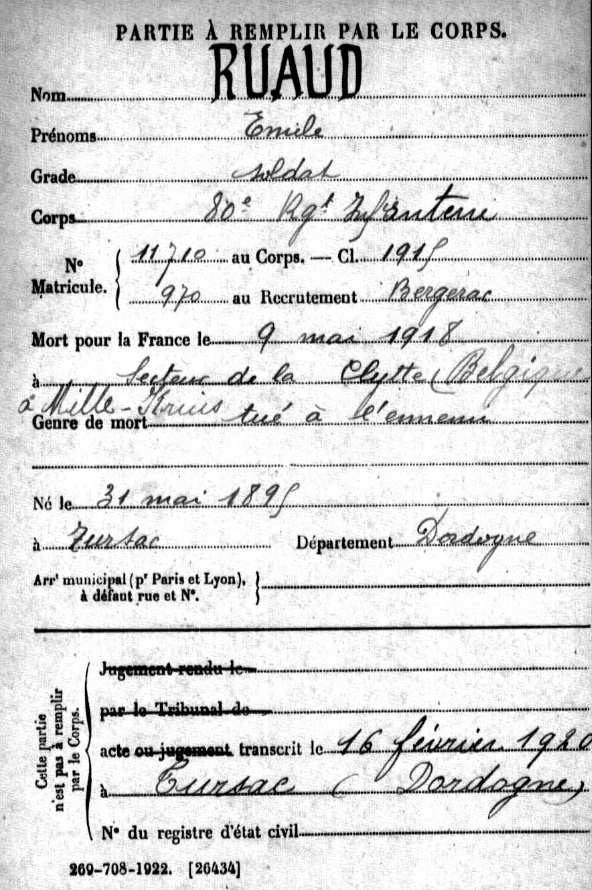 PARTIE À REMPLIR PAR LE CORPS.
Nom RUAUD
Prénoms Emile
Grade soldat
Corps 80e Rgt Infanterie
N° Matricule. 11710 au Corps. — Cl. 1915
970 au Recrutement Bergerac
Mort pour la France le 9 mai 1918
à Secteur de la Clytte (Belgique
à Mille-Kruis
Genre de mort tué à l'ennemi
Né le 31 mai 1895
à Tursac Département Dordogne
Arrt municipal (pr Paris et Lyon),
à défaut rue et N°.
Cette partie
n'est pas à remplir
par le Corps.
Jugement rendu le
par le Tribunal de
acte ou jugement transcrit le 16 février 1920
à Tursac (Dordogne)
N° du registre d'état civil
269-708-1922. [26434]